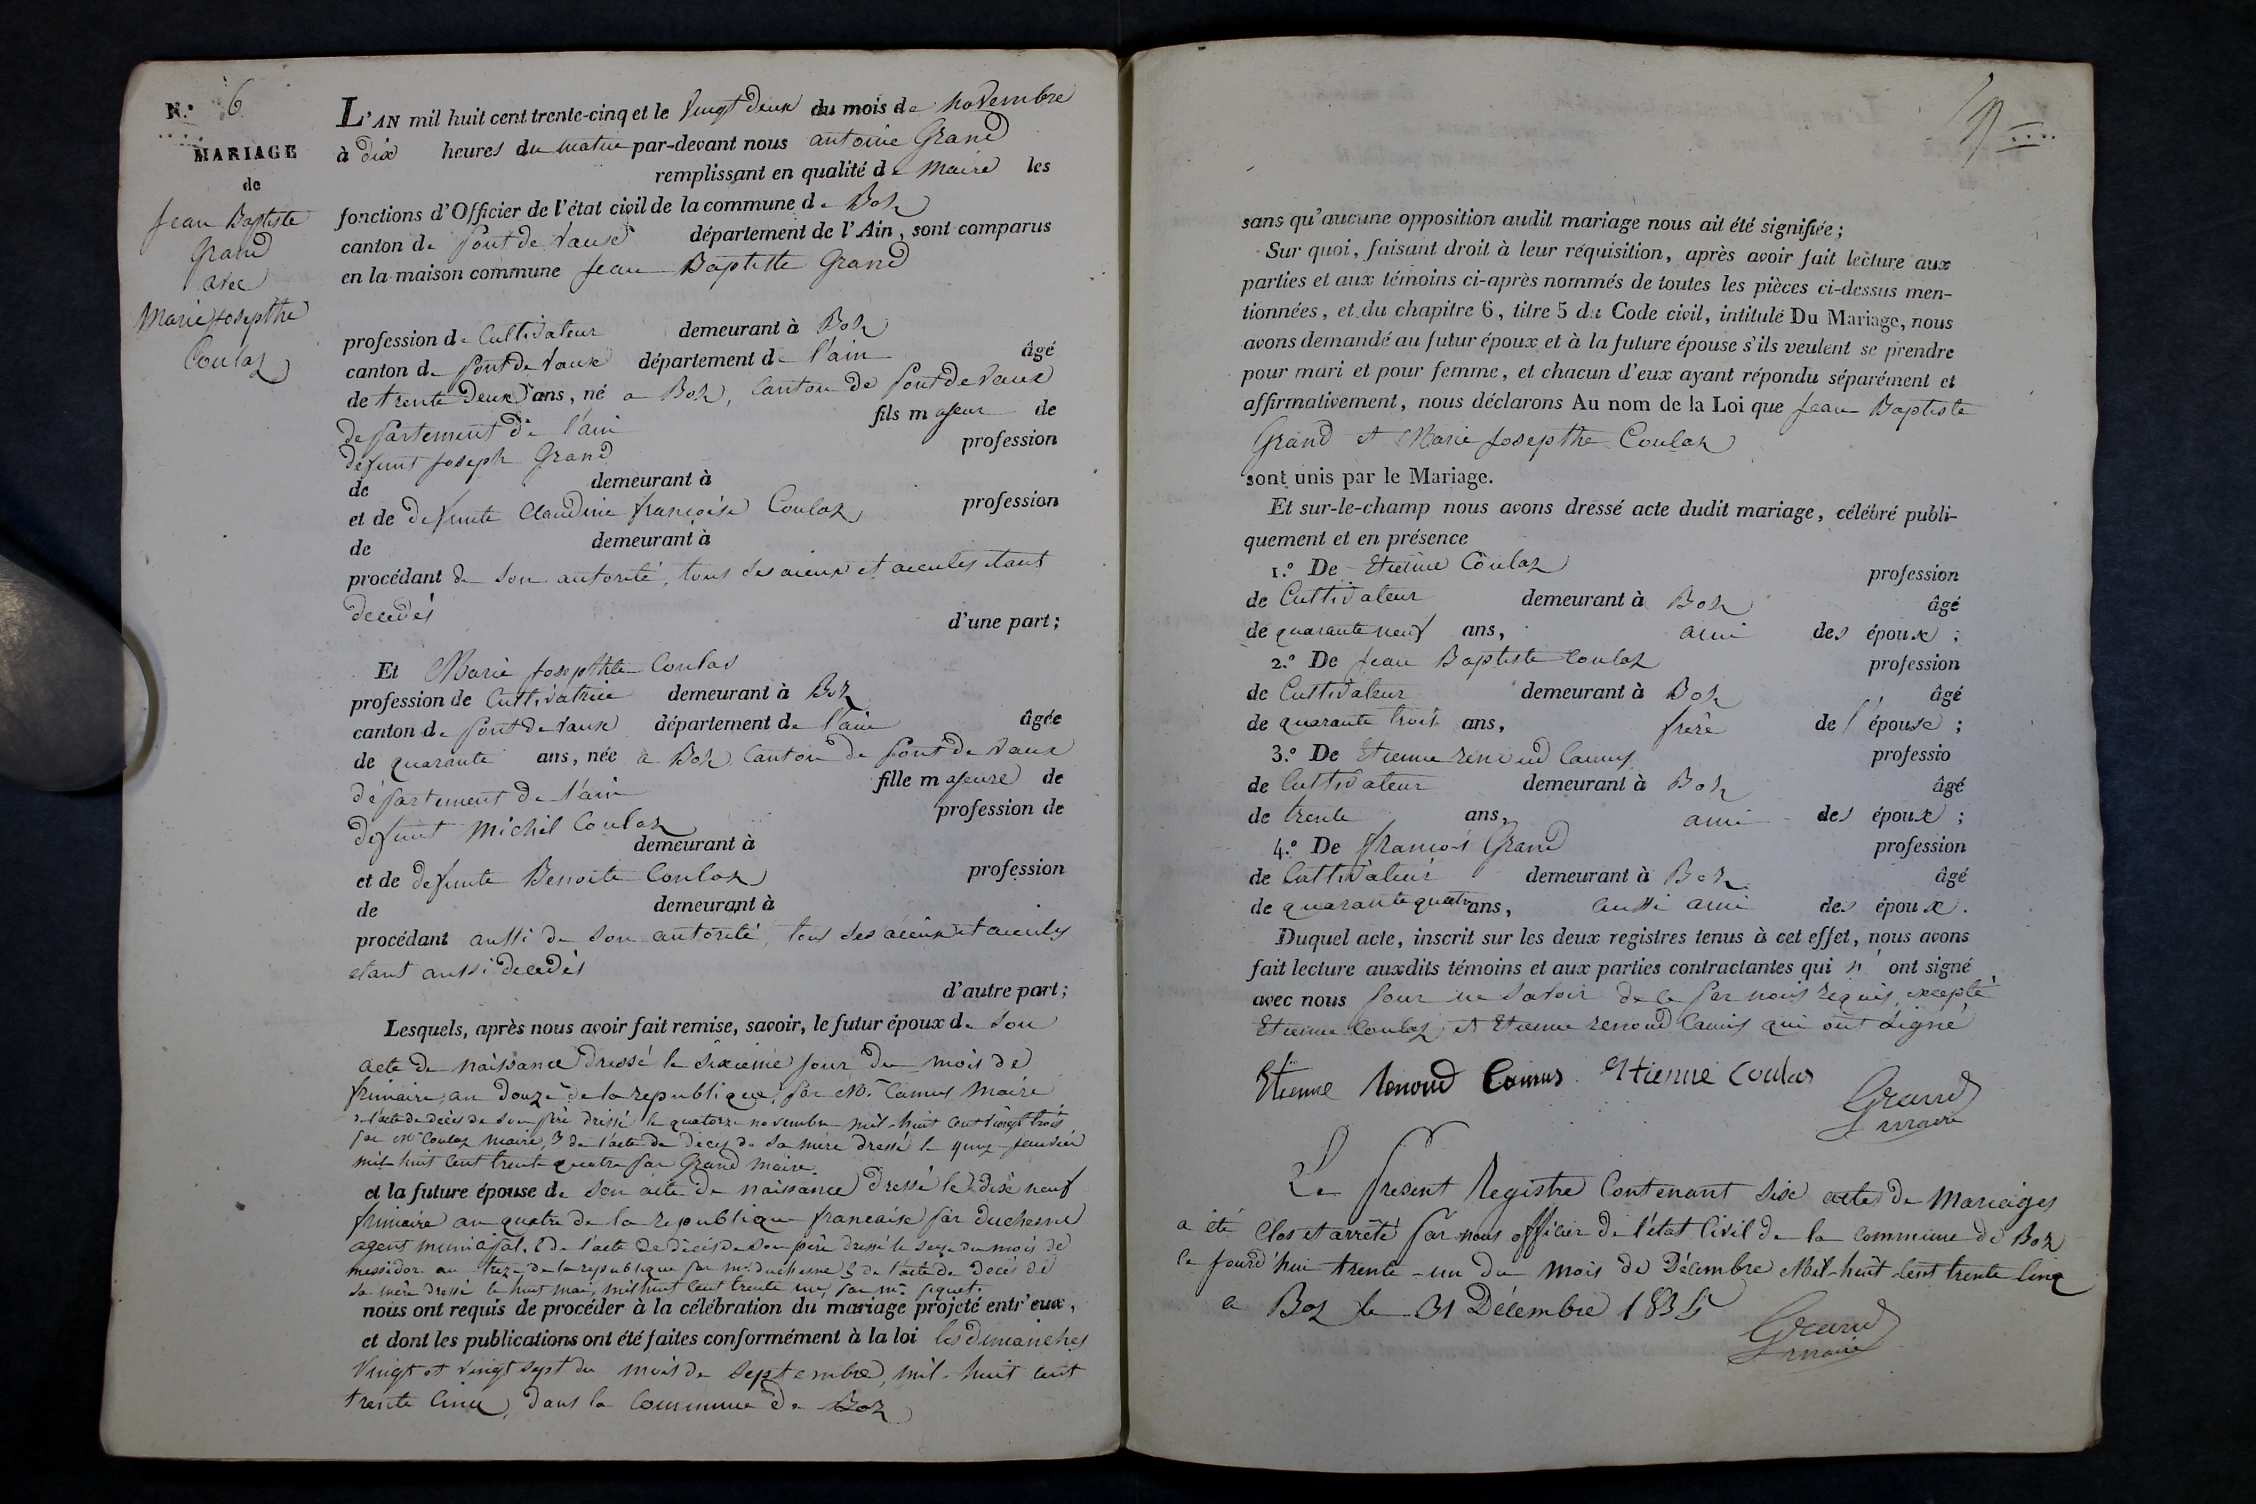 N.º 6
MARIAGE
de
Jean Baptiste
Grand
avec
Marie Josepthe
Coulaz
L'AN mil huit cent trente-cinq et le vingt deux du mois de novembre
à dix heures du matin par-devant nous antoine Grand
remplissant en qualité de maire les
fonctions d'Officier de l'état civil de la commune de Boz
canton de pont de vaux département de l'Ain, sont comparus
en la maison commune Jean Baptiste Grand
profession de Cultivateur demeurant à Boz
canton de pont de vaux département de l'ain âgé
de trente deux ans, né a Boz, canton de pont de vaux
departement de l'ain fils majeur de
defunt joseph Grand profession
de demeurant à
et de defunte Claudine françoise Coulaz profession
de demeurant à
procédant de son autorité, tous ses aieux et aieules étant
decedés
d'une part;
Et Marie Josepthte Coulas
profession de Cultivatrice demeurant à Boz
canton de pont de vaux département de l'ain âgée
de quarante ans, née a Boz canton de pont de vaux
département de l'ain fille majeure de
defunt Michel Coulaz profession de
demeurant à
et de defunte Benoite Coulaz profession
de demeurant à
procédant aussi de son autorité, tous ses aieux et aieules
etant aussi decedés
d'autre part;
Lesquels, après nous avoir fait remise, savoir, le futur époux de son
acte de naissance dressé le sixieme jour du mois de
frimaire, an douze de la republique, par Mr. Camus maire
2 l'acte de décès de son père dressé le quatorze novembre mil-huit cent vingt trois
par mr Coulaz maire, 3 de l'acte de décès de sa mère dressé le quinz janvier
mil huit cent trente quatre par Grand maire.
et la future épouse de son acte de naissance dressé le dix neuf
frimaire an quatre de la republique francaise par duchesne
agent municipal. 2 de l'acte de décès de son père dressé le seize du mois de
messidor an treize de la republique par mr. duchesne 3 de l'acte de décès de
sa mère dressé le huit mai, mil huit cent trente un, par mr. piquet.
nous ont requis de procéder à la célébration du mariage projeté entr'eux,
et dont les publications ont été faites conformément à la loi les dimanches
vingt et vingt sept du mois de septembre, mil-huit cent
trente cinq, dans la commune de Boz
sans qu'aucune opposition audit mariage nous ait été signifiée;
Sur quoi, faisant droit à leur réquisition, après avoir fait lecture aux
parties et aux témoins ci-après nommés de toutes les pièces ci-dessus men-
tionnées, et du chapitre 6, titre 5 du Code civil, intitulé Du Mariage, nous
avons demandé au futur époux et à la future épouse s'ils veulent se prendre
pour mari et pour femme, et chacun d'eux ayant répondu séparément et
affirmativement, nous déclarons Au nom de la Loi que Jean Baptiste
Grand et Marie Josepthe Coulaz
sont unis par le Mariage.
Et sur-le-champ nous avons dressé acte dudit mariage, célébré publi-
quement et en présence
1.º De Etienne Coulaz profession
de Cultivateur demeurant à Boz âgé
de quarante neuf ans, ami des époux;
2.º De Jean Baptiste Coulaz profession
de Cultivateur demeurant à Boz âgé
de quarante trois ans, frère de l'épouse;
3.º De Etienne renoud Camus professio
de Cultivateur demeurant à Boz âgé
de trente ans, ami des époux;
4.º De françois Grand profession
de Cultivateur demeurant à Boz âgé
de quarante quatre ans, aussi ami des époux.
Duquel acte, inscrit sur les deux registres tenus à cet effet, nous avons
fait lecture auxdits témoins et aux parties contractantes qui n'ont signé
avec nous pour ne savoir de ce par nous requis, excepté
Etienne Coulaz et Etienne renoud Camus qui ont signé
Etienne Renoud Camus Etienne Coulas
Grand
maire
Le present Registre Contenant six actes de Mariages
a été Clos et arrêté par nous officier de l'état Civil de la commune de Boz
ce jourd'hui trente-un du mois de Décembre Mil-huit-cent trente Cinq
a Boz le 31 Décembre 1835
Grand
maire